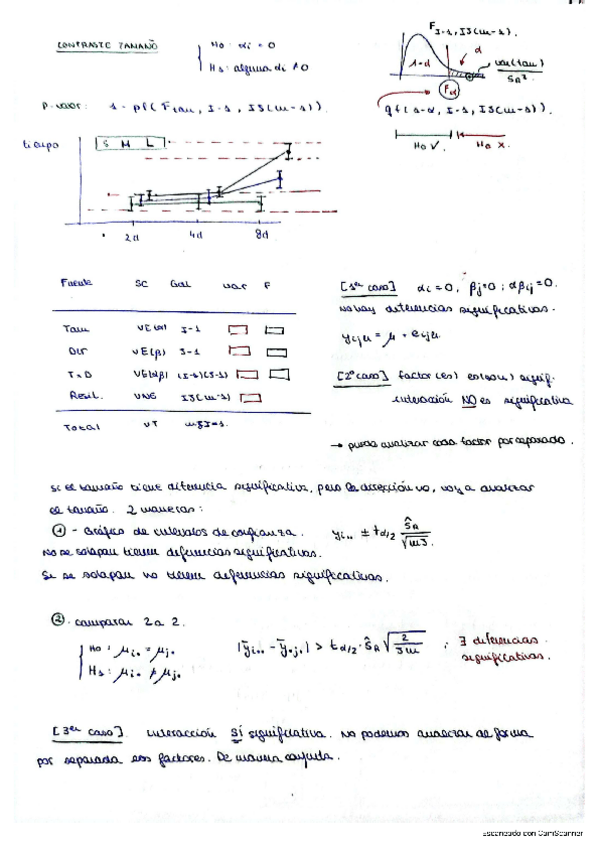 CONTRASTE TAMAÑO
H0: αi = 0
H1: alguna αi ≠ 0
F I-1, IJ(m-1).
1-α
α
Fα
var(tam)
ŜR²
p-valor: 1 - pf(Ftam, I-1, IJ(m-1)).
qf(1-α, I-1, IJ(m-1)).
H0 ✓. H0 X.
tiempo
S M L
2d 4d 8d
Fuente SC Gdl var F
Tam VE(α) I-1
Dir VE(β) J-1
TxD VE(αβ) (I-1)(J-1)
Resid. VNE IJ(m-1)
Total VT mIJ-1.
[1er caso] αi = 0, βj = 0; αβij = 0.
No hay diferencias significativas.
yijk = μ + eijk
[2º caso] factor(es) es(son) signif.
interacción NO es significativa
→ puedo analizar cada factor por separado.
Si el tamaño tiene diferencia significativa, pero la dirección no, voy a analizar
el tamaño. 2 maneras:
① - Gráfico de intervalos de confianza. yi.. ± tα/2 ŜR/√mJ.
No se solapan tienen diferencias significativas.
Si se solapan no tienen diferencias significativas.
② comparar 2 a 2.
H0: μi. = μj.
H1: μi. ≠ μj.
|ȳi.. - ȳj..| > tα/2 · ŜR √2/Jm ; ∃ diferencias
significativas.
[3er caso]. interacción SÍ significativa. No podemos analizar de forma
por separada esos factores. De manera conjunta.
Escaneado con CamScanner